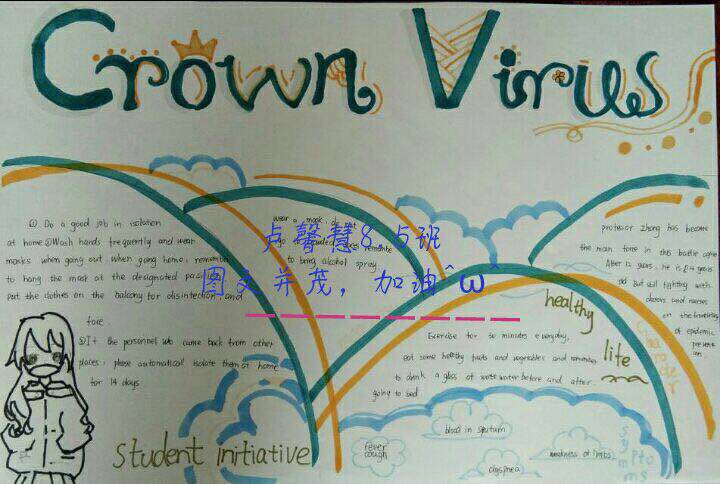 Crown Virus
① Do a good job in isolation
at home ② Wash hands frequently and wear
masks when going out. when going home, remember
to hang the mask at the designated place
put the clothes on the balcony for disinfection and
face.
the personnel who came back from other
places. please isolate them at home
for 14 days
student initiative
wear a mask, do not
go
to bring alcohol spray
卢馨慧8.5班
图文并茂，加油^ω^
professor Zhong has become
the main force in this battle again
After 17 years, he is
old But still fighting with
doctors and nurses
on the frontline
of epidemic
prevent
healthy
life
Exercise for to minutes everyday,
eat some healthy fruits and vegetables and remember
to drink a glass of water before and after
going to bed
Character
fever
cough
blood in sputum
dyspnea
weakness of limbs
symptoms